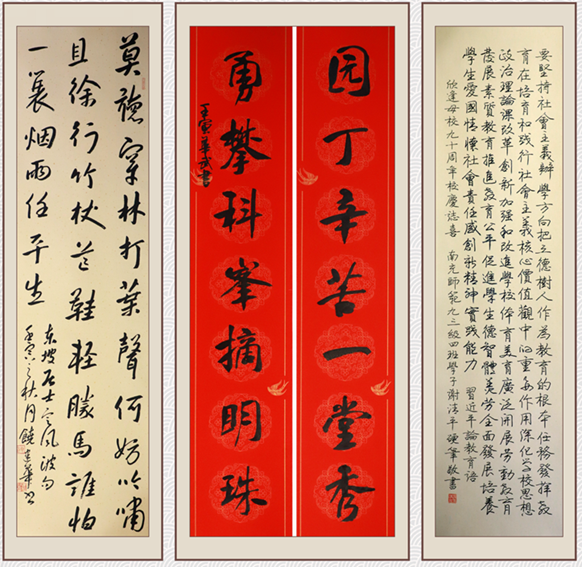 要堅持社會主義辦學方向把立德樹人作為教育的根本任務發揮教
育在培育和践行社會主義核心價值觀中的重要作用深化学校思想
政治理論課改革創新加强和改進學校体育美育廣泛開展勞動教育
發展素質教育推進教育公平促進學生德智體美勞全面發展培養
學生愛國情懷社會責任感創新精神實踐能力 習近平論教育语
欣逢母校九十周年校慶誌喜 南充師範九三級四班學子謝清平硬筆敬書
园丁辛苦一堂秀
勇攀科峯摘明珠
壬寅華武書
莫聽穿林打葉聲何妨吟嘯
且徐行竹杖芒鞋輕勝馬誰怕
一蓑烟雨任平生
东坡居士定风波句
壬寅之秋月饒華书